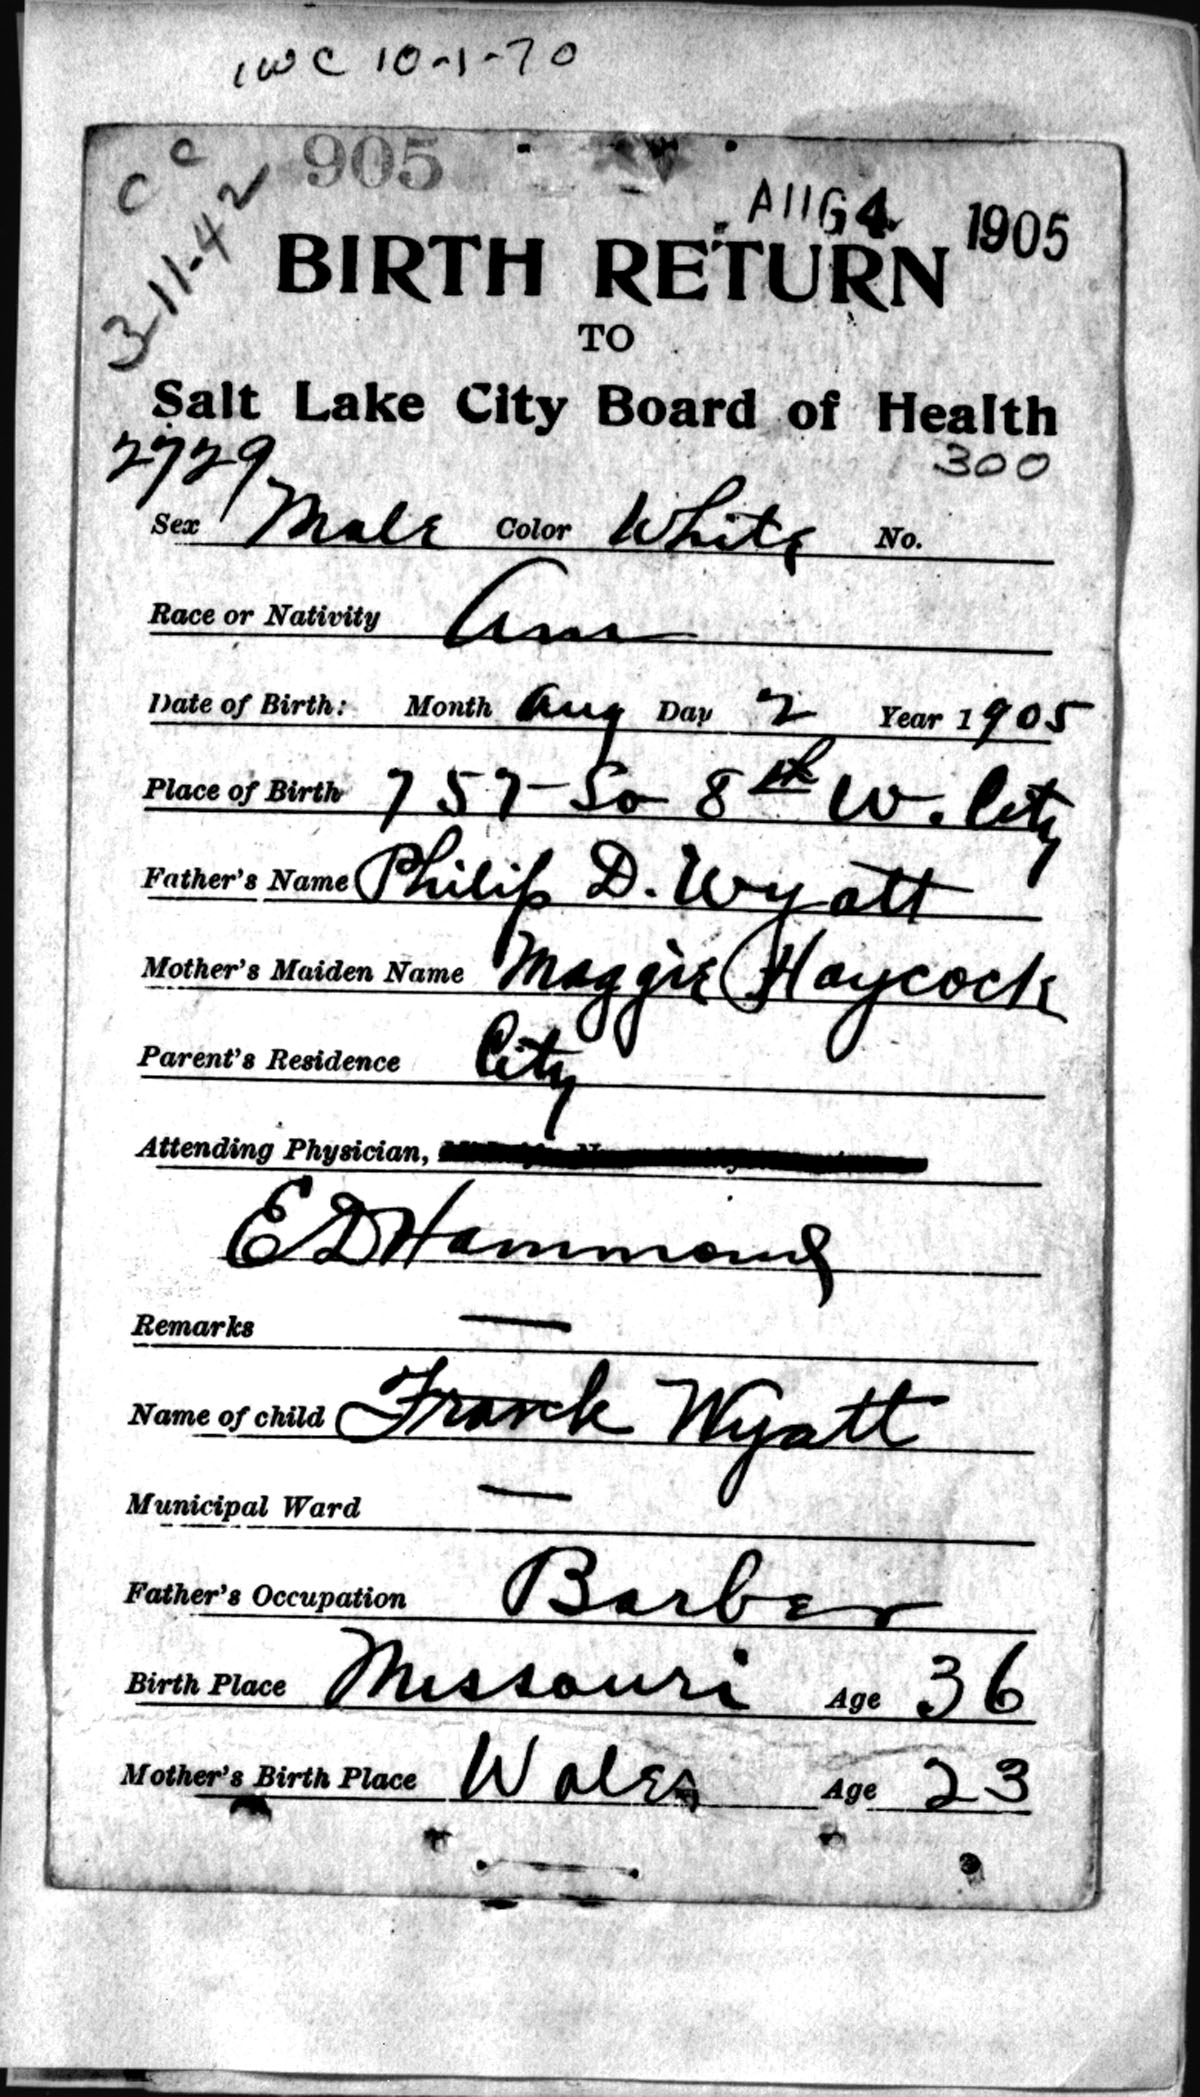 1WC 10-1-70
CC
3-11-42
905
AUG 4 1905
BIRTH RETURN
TO
Salt Lake City Board of Health
2729
300
Sex Male Color White No.
Race or Nativity Am
Date of Birth: Month Aug Day 2 Year 1905
Place of Birth 757 - So 8th W. City
Father's Name Philip D. Wyatt
Mother's Maiden Name Maggie Haycock
Parent's Residence City
Attending Physician,
E D Hammond
Remarks —
Name of child Frank Wyatt
Municipal Ward —
Father's Occupation Barber
Birth Place Missouri Age 36
Mother's Birth Place Wales Age 23